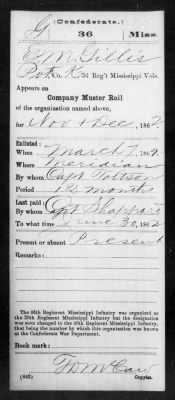 (Confederate.)
G 36 Miss.
E. M. Gillis
Pvt, Co. K, 36 Reg't Mississippi Vols.
Appears on
Company Muster Roll
of the organization named above,
for Nov & Dec, 1862.
Enlisted:
When March 7, 1862.
Where Meridian
By whom Capt
Period 12 months
Last paid:
By whom Capt Shappard
To what time June 30, 1862
Present or absent Present
Remarks:
The 36th Regiment Mississippi Infantry was organized as
the 28th Regiment Mississippi Infantry but the designation
was soon changed to the 36th Regiment Mississippi Infantry,
that being the number by which this organization was known at
the Confederate War Department.
Book mark:
(642) Copyist.